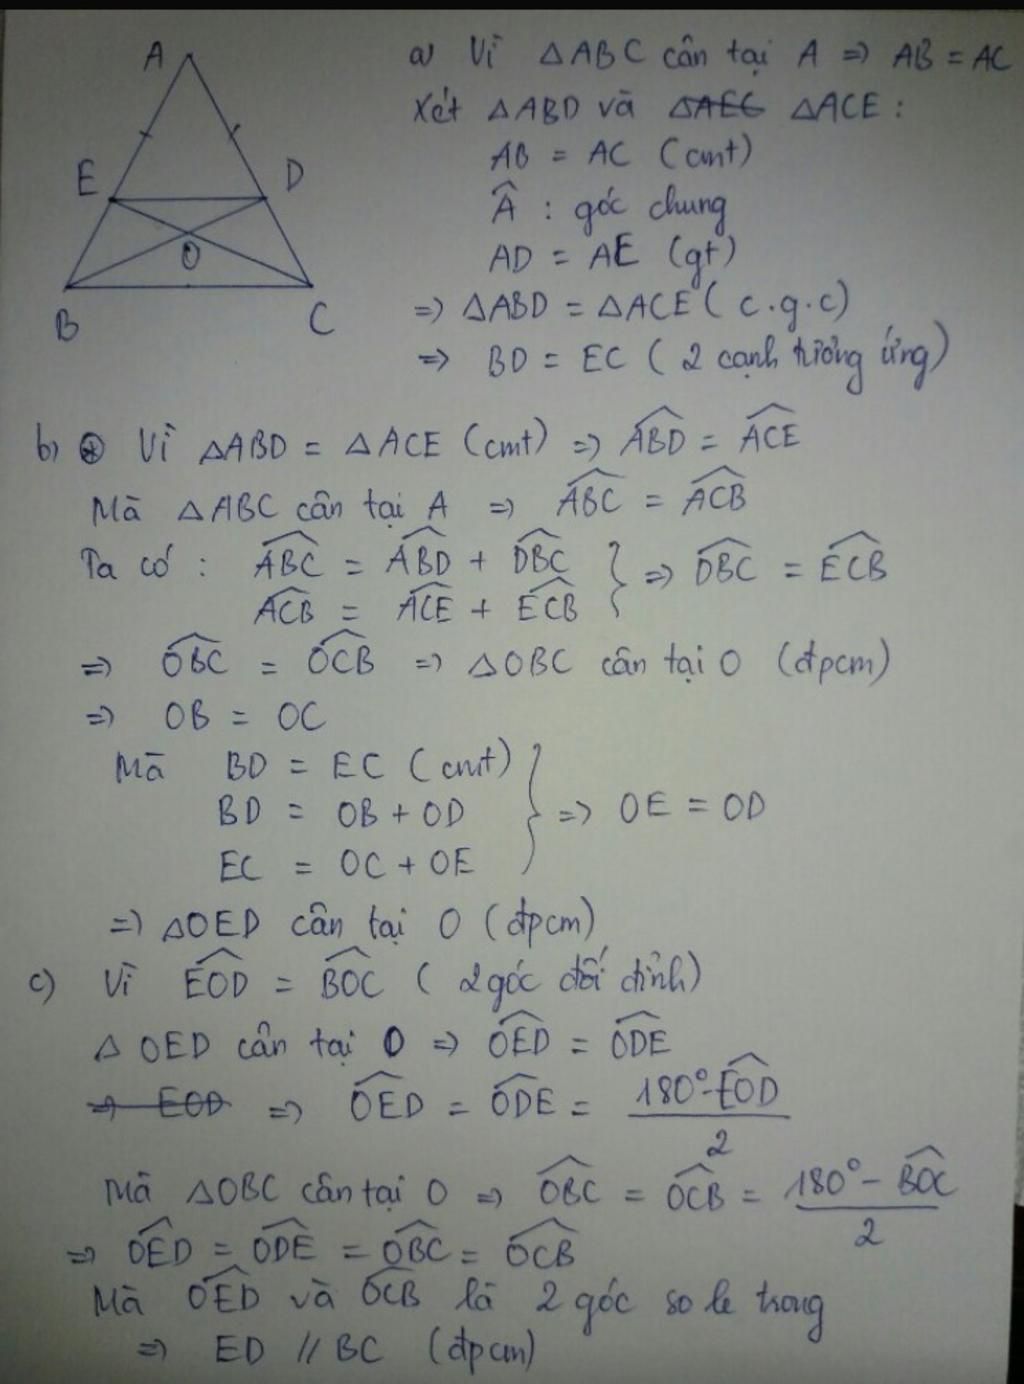 A
E
D
O
B
C
a) Vì △ABC cân tại A => AB = AC
Xét △ABD và △AEC △ACE :
AB = AC (cmt)
Â : góc chung
AD = AE (gt)
=> △ABD = △ACE ( c.g.c)
=> BD = EC ( 2 cạnh tương ứng)
b) ⊛ Vì △ABD = △ACE (cmt) => \widehat{ABD} = \widehat{ACE}
Mà △ABC cân tại A => \widehat{ABC} = \widehat{ACB}
Ta có : \widehat{ABC} = \widehat{ABD} + \widehat{DBC} } => \widehat{DBC} = \widehat{ECB}
\widehat{ACB} = \widehat{ACE} + \widehat{ECB}
=> \widehat{OBC} = \widehat{OCB} => △OBC cân tại O (đpcm)
=> OB = OC
Mà BD = EC (cmt)
BD = OB + OD } => OE = OD
EC = OC + OE
=> △OED cân tại O (đpcm)
c) Vì \widehat{EOD} = \widehat{BOC} ( 2 góc đối đỉnh)
△ OED cân tại O => \widehat{OED} = \widehat{ODE}
=> EOD => \widehat{OED} = \widehat{ODE} = \frac{180° - \widehat{EOD}}{2}
Mà △OBC cân tại O => \widehat{OBC} = \widehat{OCB} = \frac{180° - \widehat{BOC}}{2}
=> \widehat{OED} = \widehat{ODE} = \widehat{OBC} = \widehat{OCB}
Mà \widehat{OED} và \widehat{OCB} là 2 góc so le trong
=> ED // BC (đpcm)